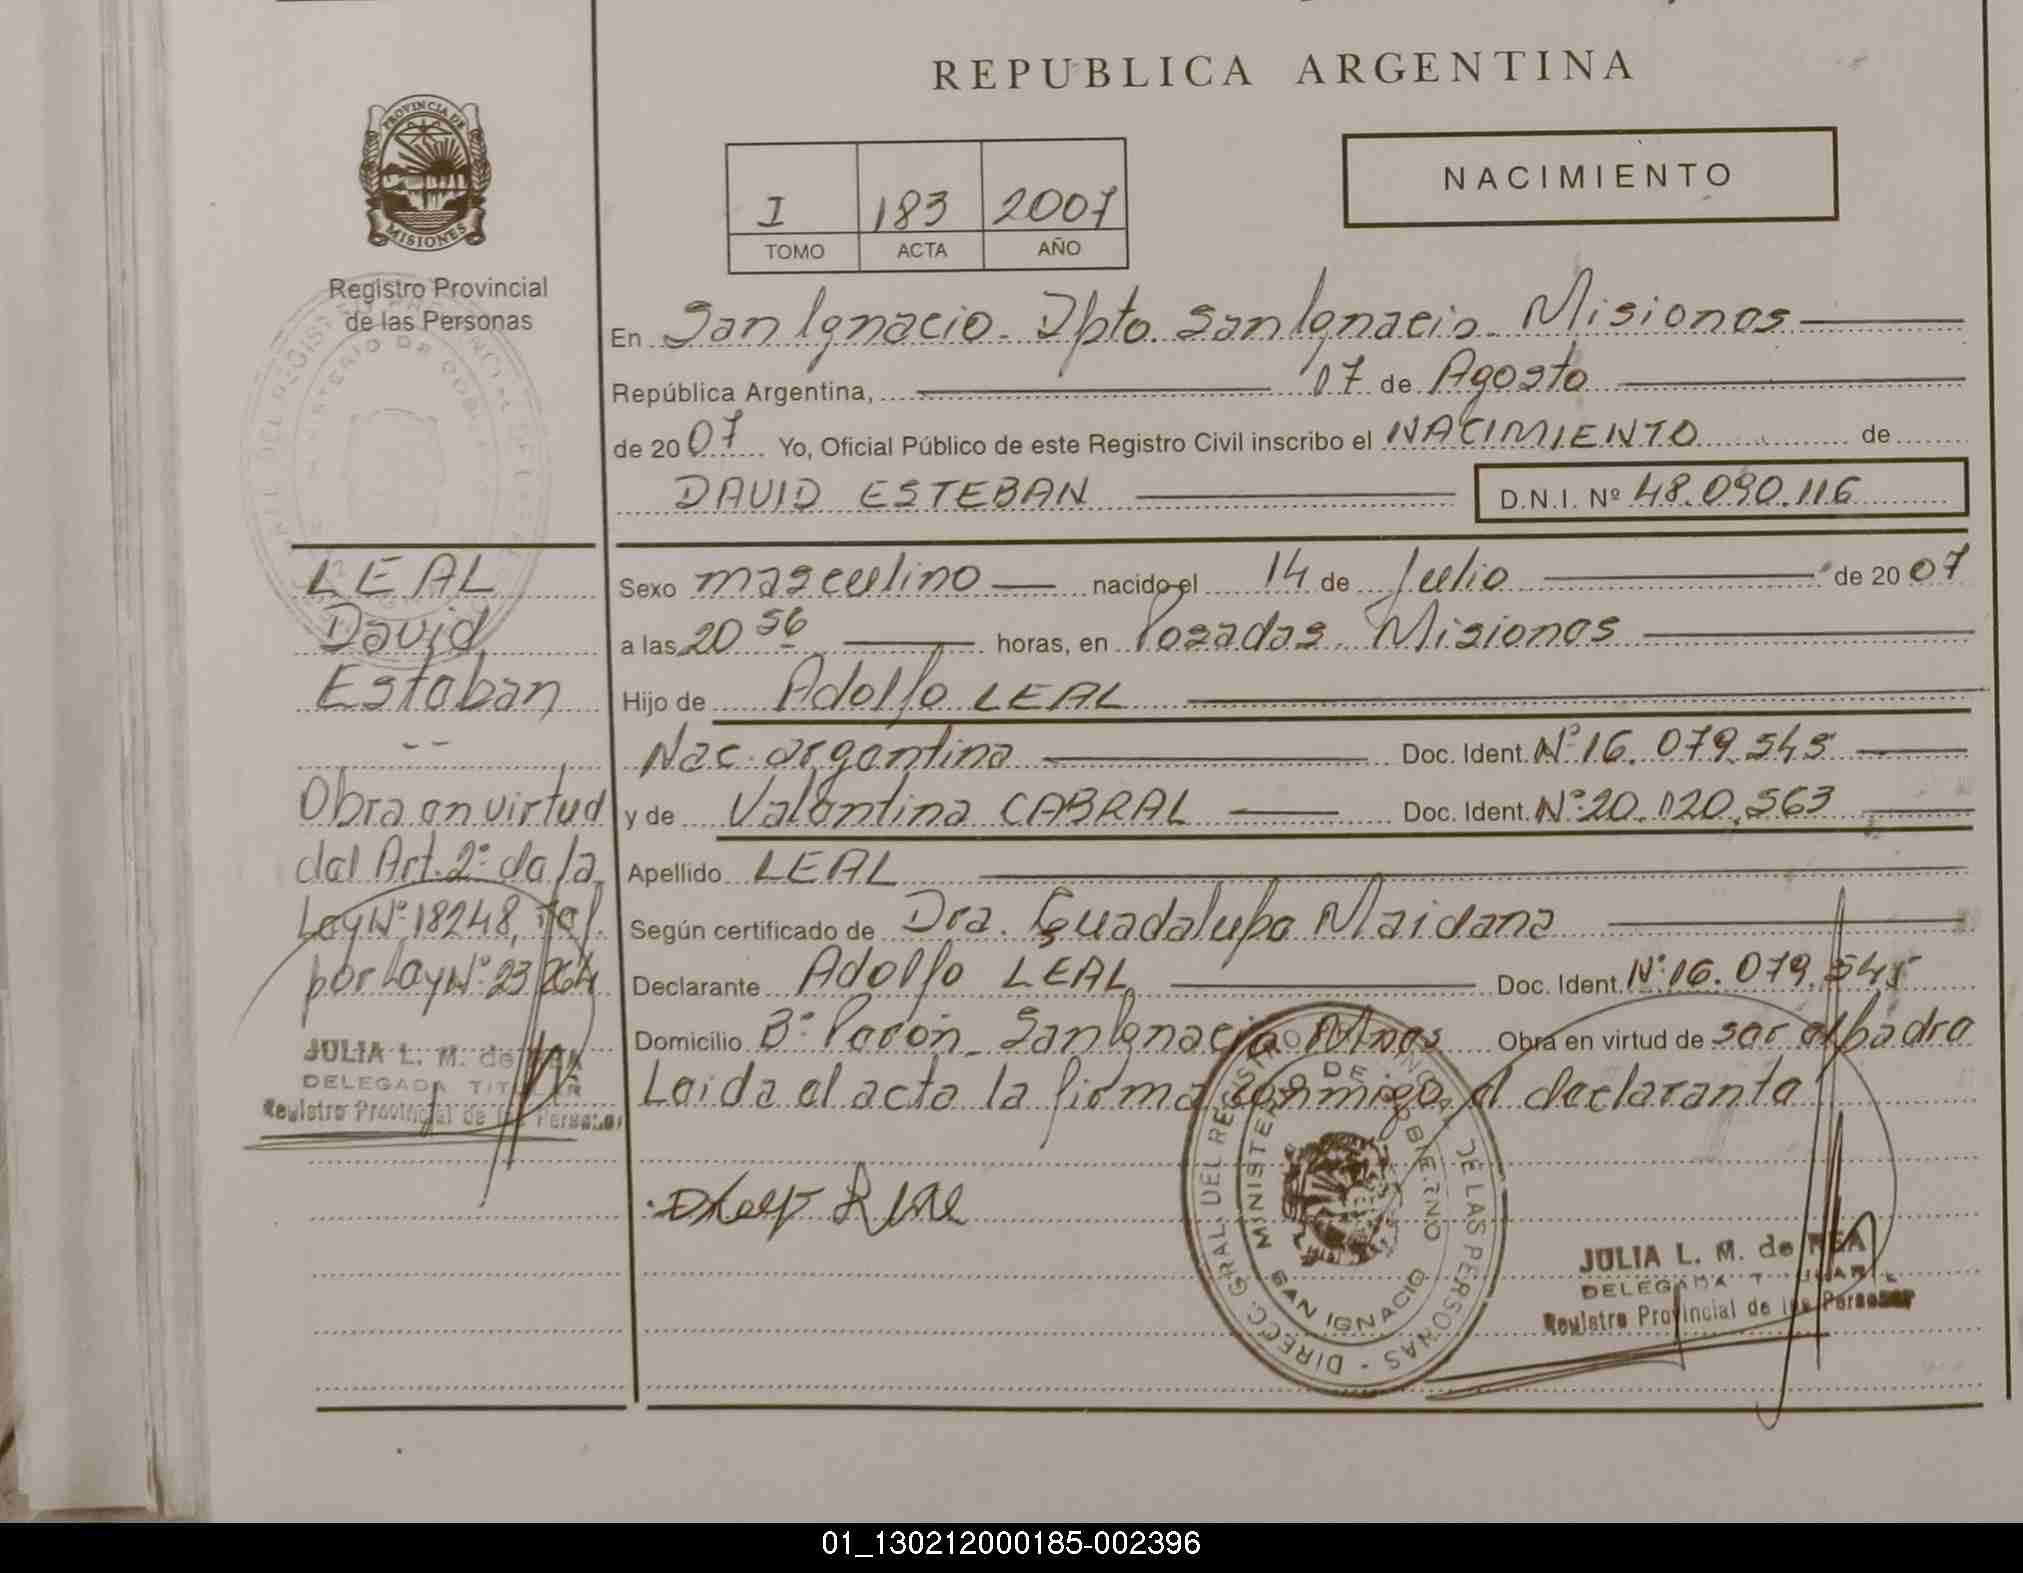 REPUBLICA ARGENTINA
PROVINCIA DE
MISIONES
Registro Provincial
de las Personas
I 183 2007
TOMO ACTA AÑO
NACIMIENTO
En San Ignacio - Dpto. San Ignacio - Misiones
República Argentina, 07 de Agosto
de 2007 Yo, Oficial Público de este Registro Civil inscribo el NACIMIENTO de
DAVID ESTEBAN D.N.I. Nº 48.090.116
LEAL
David
Esteban
--
Obra en virtud
del Art. 2º de la
Ley Nº 18248, ref.
por Ley Nº 23264
JULIA L. M. de REA
DELEGADA TITULAR
Registro Provincial de las Personas
Sexo masculino nacido el 14 de Julio de 2007
a las 20 56 horas, en Posadas, Misiones
Hijo de Adolfo LEAL
Nac. argentina Doc. Ident. Nº 16.079.545
y de Valentina CABRAL Doc. Ident. Nº 20.120.563
Apellido LEAL
Según certificado de Dra. Guadalupe Maidana
Declarante Adolfo LEAL Doc. Ident. Nº 16.079.545
Domicilio Bº Perón - San Ignacio Mnes Obra en virtud de ser el padre
Leida el acta la firma conmigo el declarante
DIRECC. GRAL. DEL REGISTRO PROVINCIAL DE LAS PERSONAS -
MINISTERIO DE GOBIERNO
SAN IGNACIO
JULIA L. M. de REA
DELEGADA TITULAR
Registro Provincial de las Personas
01_130212000185-002396